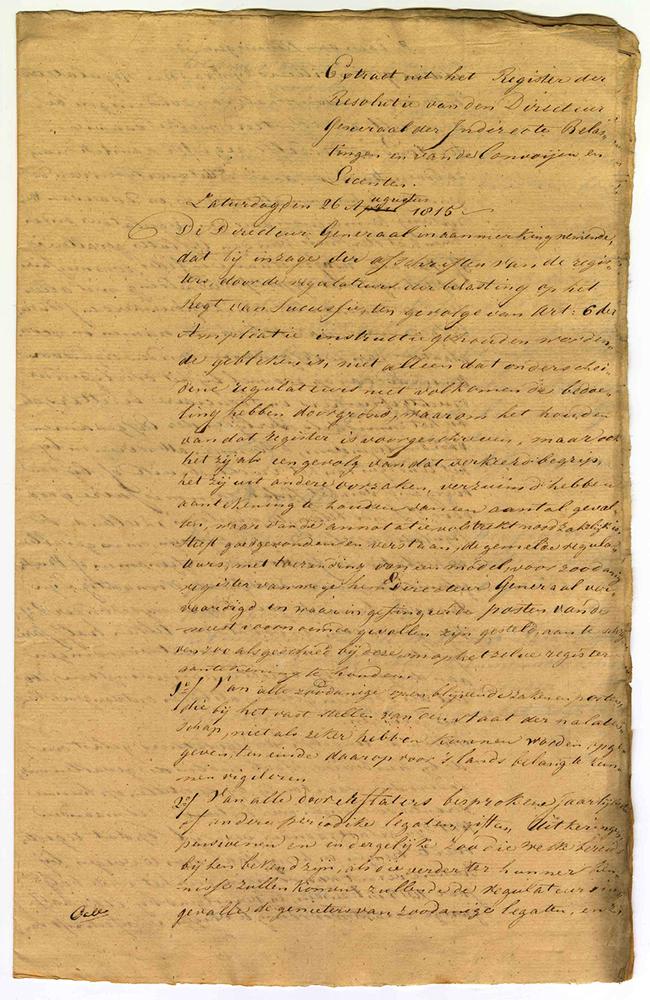 Extract uit het Register der
Resolutie van den Directeur
Generaal der Indirecte Belas-
tingen en van de Convoijen en
Licenten.
Saturdag den 26 Augustus 1815
De Directeur Generaal in aanmerking nemende,
dat bij inzage der afschriften van de regis-
ters, door de regulateurs der belasting op het
Regt van Successie, ten gevolge van Art: 6 der
Ampliatie instructie gehouden worden-
de gebleken is, niet alleen dat onderschei-
dene regulateurs niet volkomen de bedoe-
ling hebben doorgrond, waarom het houden
van dat register is voorgeschreven, maar ook
het zij als een gevolg van dat verkeerd begrip,
het zij uit andere oorzaken, verzuimd hebben
aantekening te houden van een aantal geval-
len, waar van de annotatie volstrekt noodzakelijk is
Heeft goedgevonden en verstaan, de gemelde regula-
teurs, met toezending van een model, voor zoodanig
register van wege hem Directeur Generaal ver-
vaardigd en waar in gefingeerde posten van de
meest voorkomende gevallen zijn gesteld, aan te schrij-
ven zoo als geschied bij deze, om op hetzelve register
aantekening te houden.
1º/ Van alle zoodanige open blijvende zaken en posten,
die bij het vast stellen van den staat der nalaten-
schap, niet als zeker hebben kunnen worden opge-
geven, ten einde daarop voor 's lands belang te kun-
nen vigileren
2º/ Van alle door Testateurs besprokene jaarlijksche
of andere periodike legaten, giften, Uitkeringen,
pensioenen en indergelijke zoo die welke bereids
bij hen bekend zijn, als die verder ter hunner ken-
nisse zullen komen zullende de regulateurs in
gevalle de genieters van zoodanige legaten, en z: